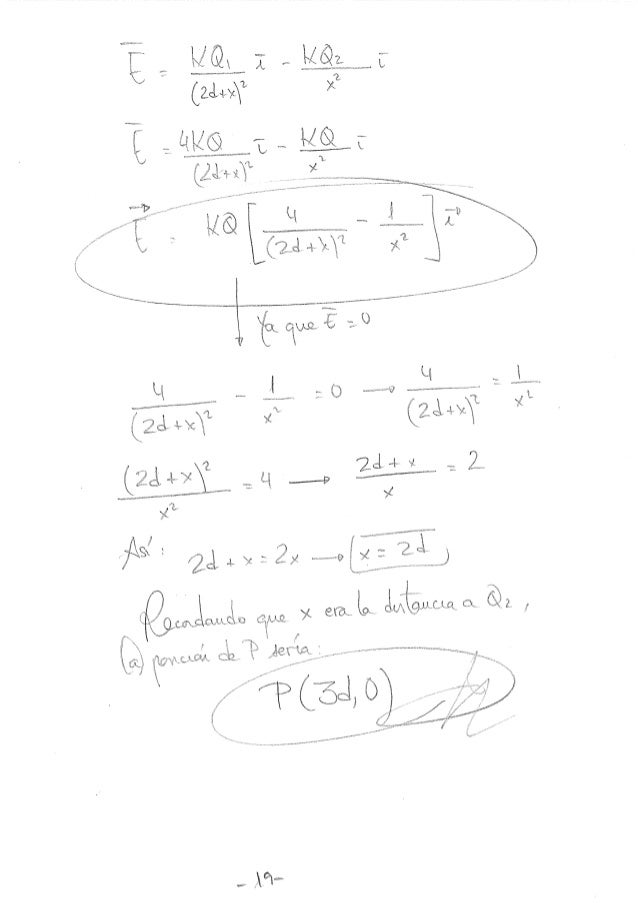 E̅ = KQ₁/(2d+x)² i̅ - KQ₂/x² i̅
E̅ = 4KQ/(2d+x)² i̅ - KQ/x² i̅
E⃗ = KQ [ 4/(2d+x)² - 1/x² ] i⃗
Ya que E̅ = 0
4/(2d+x)² - 1/x² = 0 → 4/(2d+x)² = 1/x²
(2d+x)²/x² = 4 → (2d+x)/x = 2
Así: 2d+x = 2x → x = 2d
Recordando que x era la distancia a Q₂,
(a) posición de P sería:
P(3d,0)
-19-